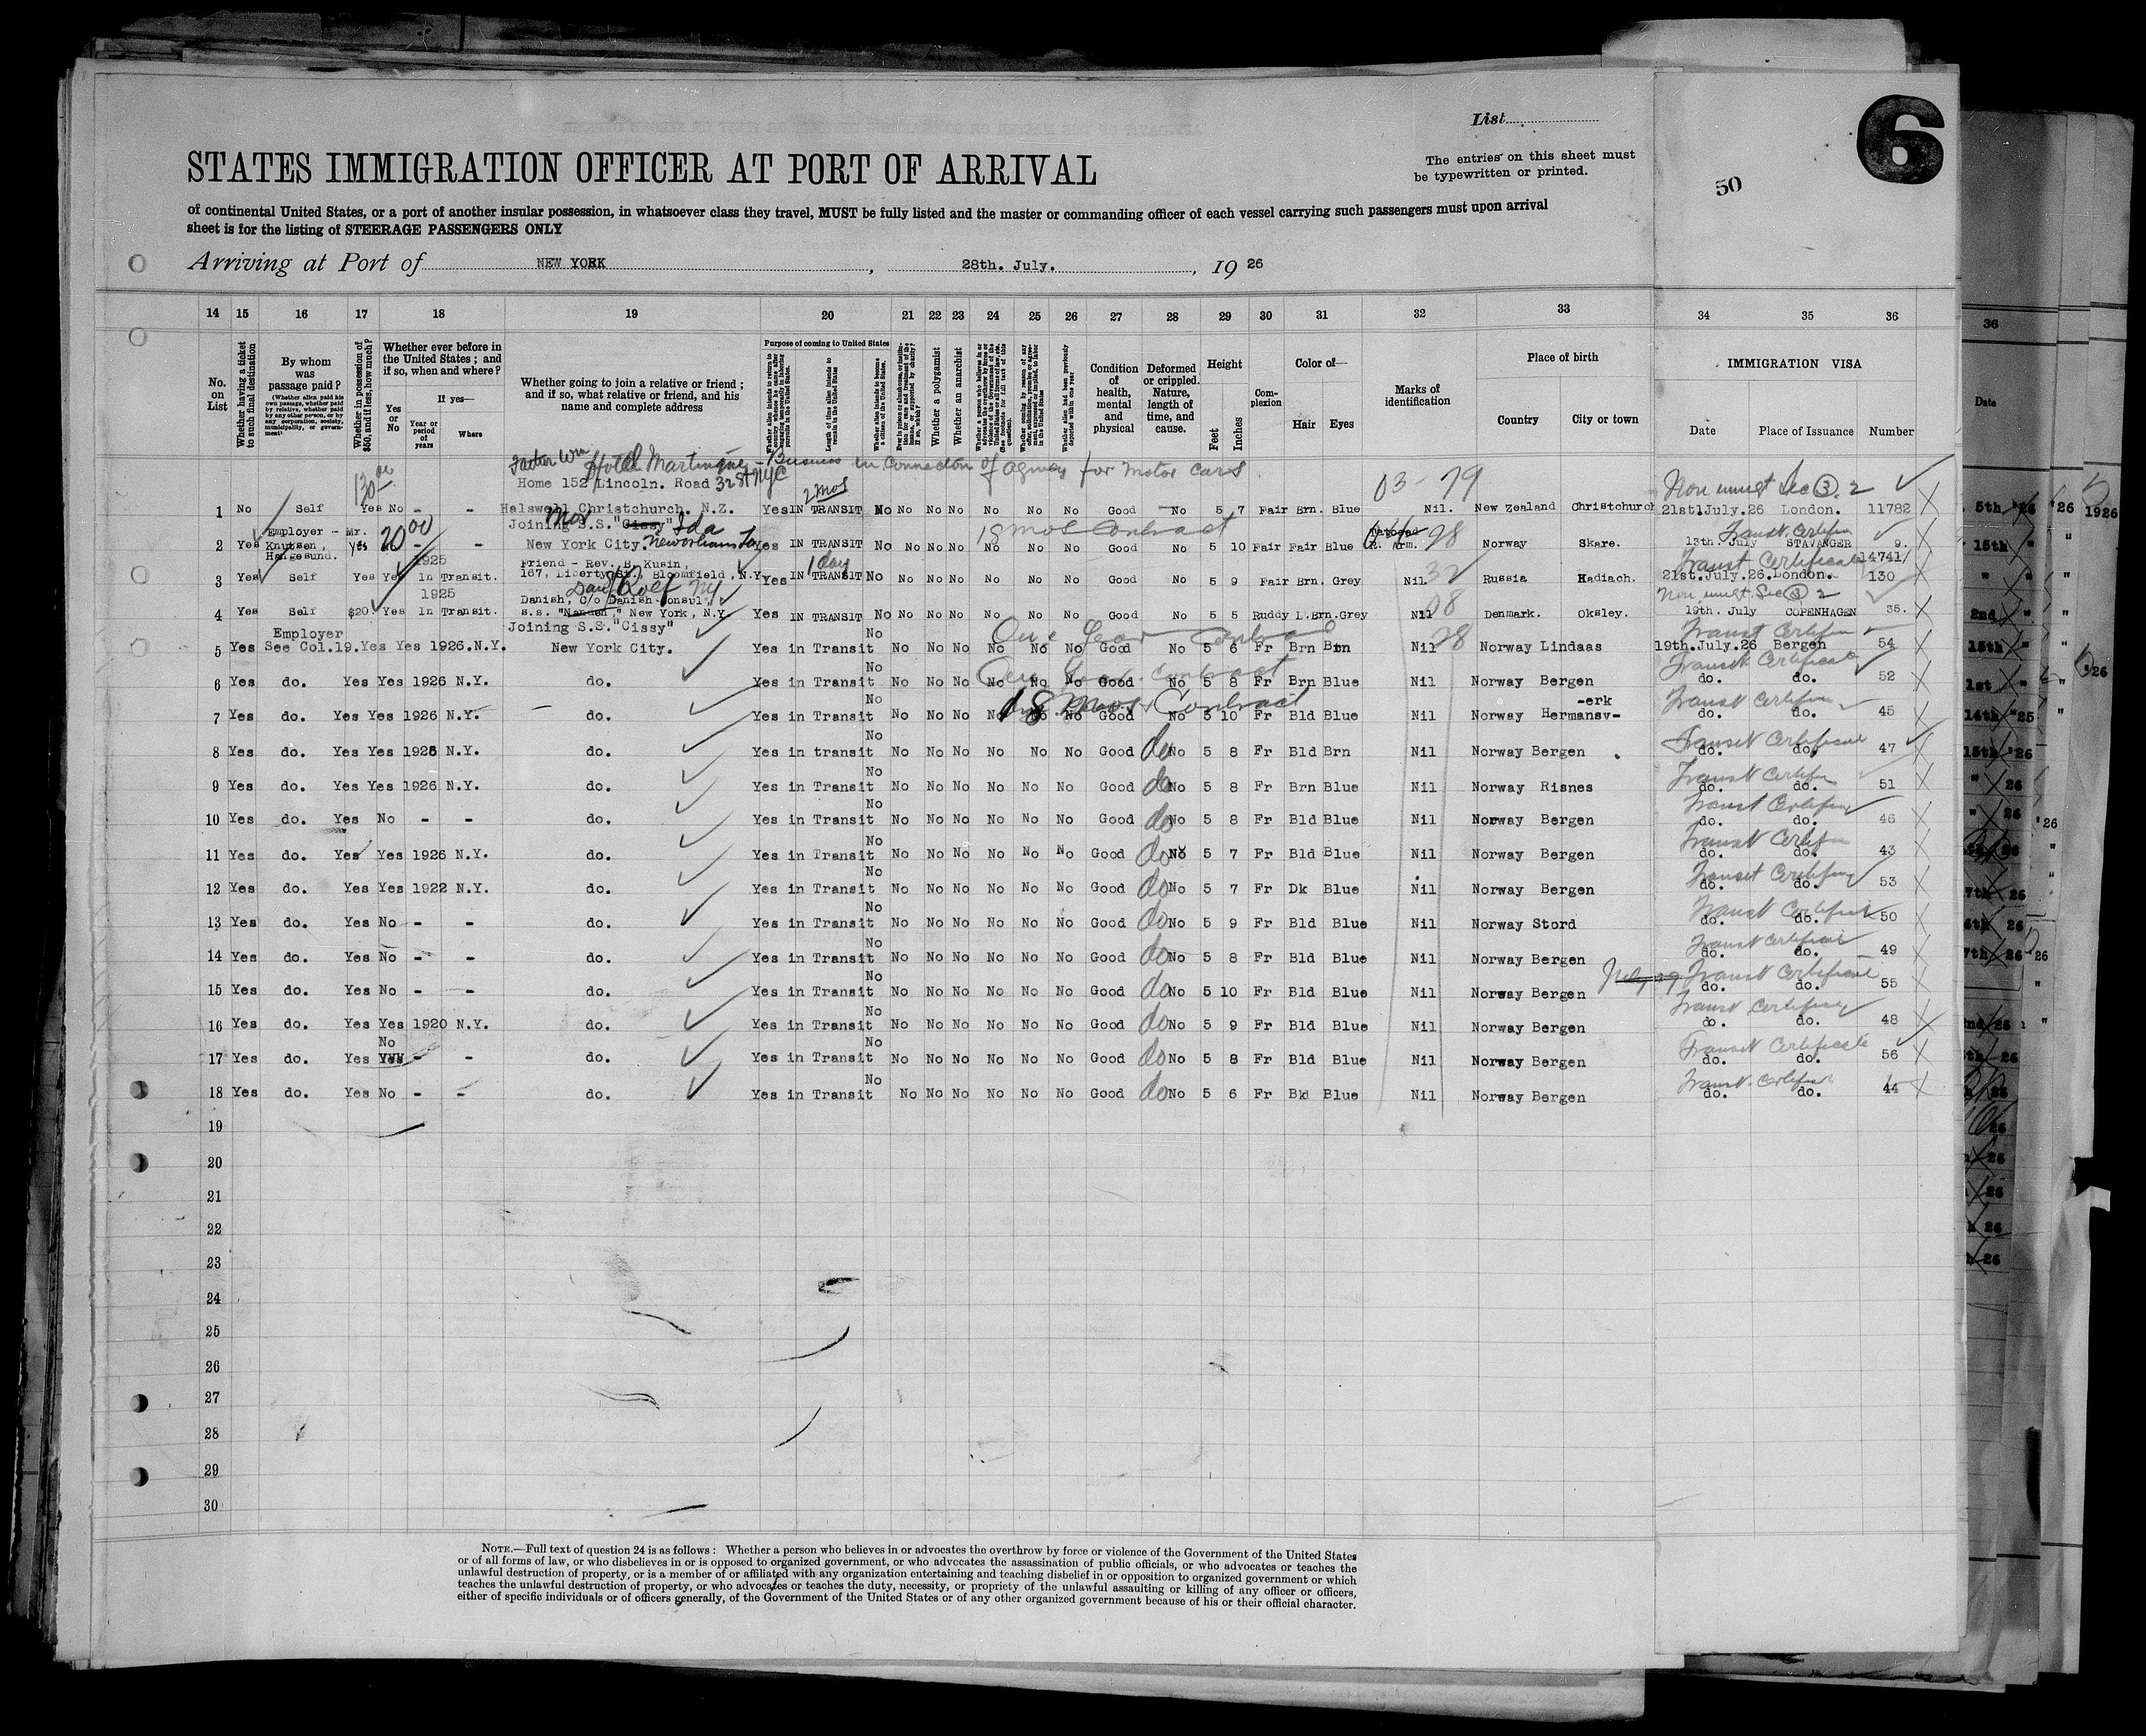 List
6
50
STATES IMMIGRATION OFFICER AT PORT OF ARRIVAL
The entries on this sheet must
be typewritten or printed.
of continental United States, or a port of another insular possession, in whatsoever class they travel, MUST be fully listed and the master or commanding officer of each vessel carrying such passengers must upon arrival
sheet is for the listing of STEERAGE PASSENGERS ONLY
Arriving at Port of NEW YORK, 28th. July., 19 26
14 15 16 17 18 19 20 21 22 23 24 25 26 27 28 29 30 31 32 33 34 35 36
No. on List
Whether having a ticket to such final destination
By whom was passage paid?
(Whether alien paid his own passage, whether paid by relative, whether paid by any other person, or by any corporation, society, municipality, or government)
Whether in possession of $50, and if less, how much?
Whether ever before in the United States; and if so, when and where?
Yes or No
If yes—
Year or period of years
Where
Whether going to join a relative or friend; and if so, what relative or friend, and his name and complete address
Purpose of coming to United States
Length of time alien intends to remain in the United States
Whether alien intends to become a citizen of the United States
Whether a polygamist
Whether an anarchist
Condition of health, mental and physical
Deformed or crippled. Nature, length of time, and cause.
Height
Feet Inches
Complexion
Color of—
Hair Eyes
Marks of identification
Place of birth
Country City or town
IMMIGRATION VISA
Date Place of Issuance Number
Hotel Martinique Business in connection of agency for motor cars
130.00 Home 152 Lincoln. Road 32 St NYC 2 mos 03-79 Non immgt Sec 3.2
1 No Self Yes No - - Halswell Christchurch. N.Z. Yes IN TRANSIT No No No No No No No Good No 5 7 Fair Brn. Blue Nil. New Zealand Christchurch 21st July.26 London. 11782
Employer - Mr. Joining S.S."Cissy" Ida 18 mos Contract Transit Certificate
2 Yes Knutsen, Haugesund. Yes 20.00 - - New York City. New Orleans La Yes IN TRANSIT No No No No No No No Good No 5 10 Fair Fair Blue R. Arm. 98 Norway Skare. 13th. July STAVANGER 9.
1925 Friend - Rev. B. Kusin, 1 day Transit Certificate 14741/
3 Yes Self Yes Yes In Transit. 167, Liberty St., Bloomfield, N.Y. Yes IN TRANSIT No No No No No No No Good No 5 9 Fair Brn. Grey Nil 32 Russia Hadiach. 21st.July.26.London. 130
1925 Danish, c/o Danish Consul, 08 Non immgt Sec 3 2
4 Yes Self $20. Yes In Transit. s.s. "Nanden," New York, N.Y. Yes IN TRANSIT No No No No No No No Good No 5 5 Ruddy L.Brn.Grey Nil Denmark. Oksley. 19th. July COPENHAGEN 35.
Employer Joining S.S."Cissy" No One Year Contract Transit Certificate
5 Yes See Col.19. Yes Yes 1926.N.Y. New York City. Yes in Transit No No No No No No Good No 5 6 Fr Brn Brn Nil 28 Norway Lindaas 19th.July.26 Bergen 54
No One Year Contract Transit Certificate
6 Yes do. Yes Yes 1926 N.Y. do. Yes in Transit No No No No No No Good No 5 8 Fr Brn Blue Nil Norway Bergen do. do. 52
No 18 mos Contract -erk Transit Certificate
7 Yes do. Yes Yes 1926 N.Y. do. Yes in Transit No No No No No No Good No 5 10 Fr Bld Blue Nil Norway Hermansv- do. do. 45
No Transit Certificate
8 Yes do. Yes Yes 1926 N.Y. do. Yes in transit No No No No No No Good do No 5 8 Fr Bld Brn Nil Norway Bergen do. do. 47
No Transit Certificate
9 Yes do. Yes Yes 1926 N.Y. do. Yes in Transit No No No No No No Good do No 5 8 Fr Brn Blue Nil Norway Risnes do. do. 51
No Transit Certificate
10 Yes do. Yes No - - do. Yes in Transit No No No No No No Good do No 5 8 Fr Bld Blue Nil Norway Bergen do. do. 46
No Transit Certificate
11 Yes do. Yes Yes 1926 N.Y. do. Yes in Transit No No No No No No Good do No 5 7 Fr Bld Blue Nil Norway Bergen do. do. 43
No Transit Certificate
12 Yes do. Yes Yes 1922 N.Y. do. Yes in Transit No No No No No No Good do No 5 7 Fr Dk Blue Nil Norway Bergen do. do. 53
No Transit Certificate
13 Yes do. Yes No - - do. Yes in Transit No No No No No No Good do No 5 9 Fr Bld Blue Nil Norway Stord do. do. 50
No Transit Certificate
14 Yes do. Yes No - - do. Yes in Transit No No No No No No Good do No 5 8 Fr Bld Blue Nil Norway Bergen do. do. 49
No Transit Certificate
15 Yes do. Yes No - - do. Yes in Transit No No No No No No Good do No 5 10 Fr Bld Blue Nil Norway Bergen do. do. 55
No Transit Certificate
16 Yes do. Yes Yes 1920 N.Y. do. Yes in Transit No No No No No No Good do No 5 9 Fr Bld Blue Nil Norway Bergen do. do. 48
No No Transit Certificate
17 Yes do. Yes - - do. Yes in Transit No No No No No No Good do No 5 8 Fr Bld Blue Nil Norway Bergen do. do. 56
No Transit Certificate
18 Yes do. Yes No - - do. Yes in Transit No No No No No No Good do No 5 6 Fr Bld Blue Nil Norway Bergen do. do. 44
19
20
21
22
23
24
25
26
27
28
29
30
NOTE.—Full text of question 24 is as follows: Whether a person who believes in or advocates the overthrow by force or violence of the Government of the United States
or of all forms of law, or who disbelieves in or is opposed to organized government, or who advocates the assassination of public officials, or who advocates or teaches the
unlawful destruction of property, or is a member of or affiliated with any organization entertaining and teaching disbelief in or opposition to organized government or which
teaches the unlawful destruction of property, or who advocates or teaches the duty, necessity, or propriety of the unlawful assaulting or killing of any officer or officers,
either of specific individuals or of officers generally, of the Government of the United States or of any other organized government because of his or their official character.
36
Date